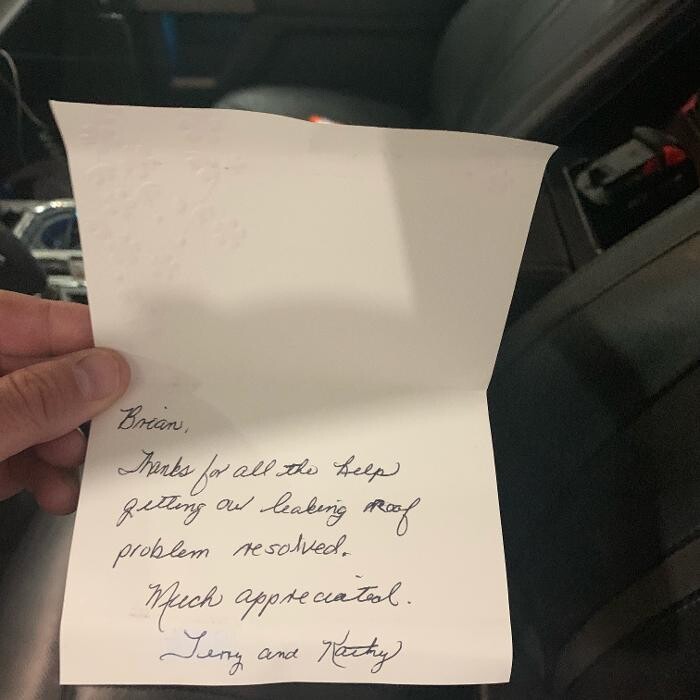 Brian,
Thanks for all the help
getting our leaking roof
problem resolved.
Much appreciated.
Terry and Kathy